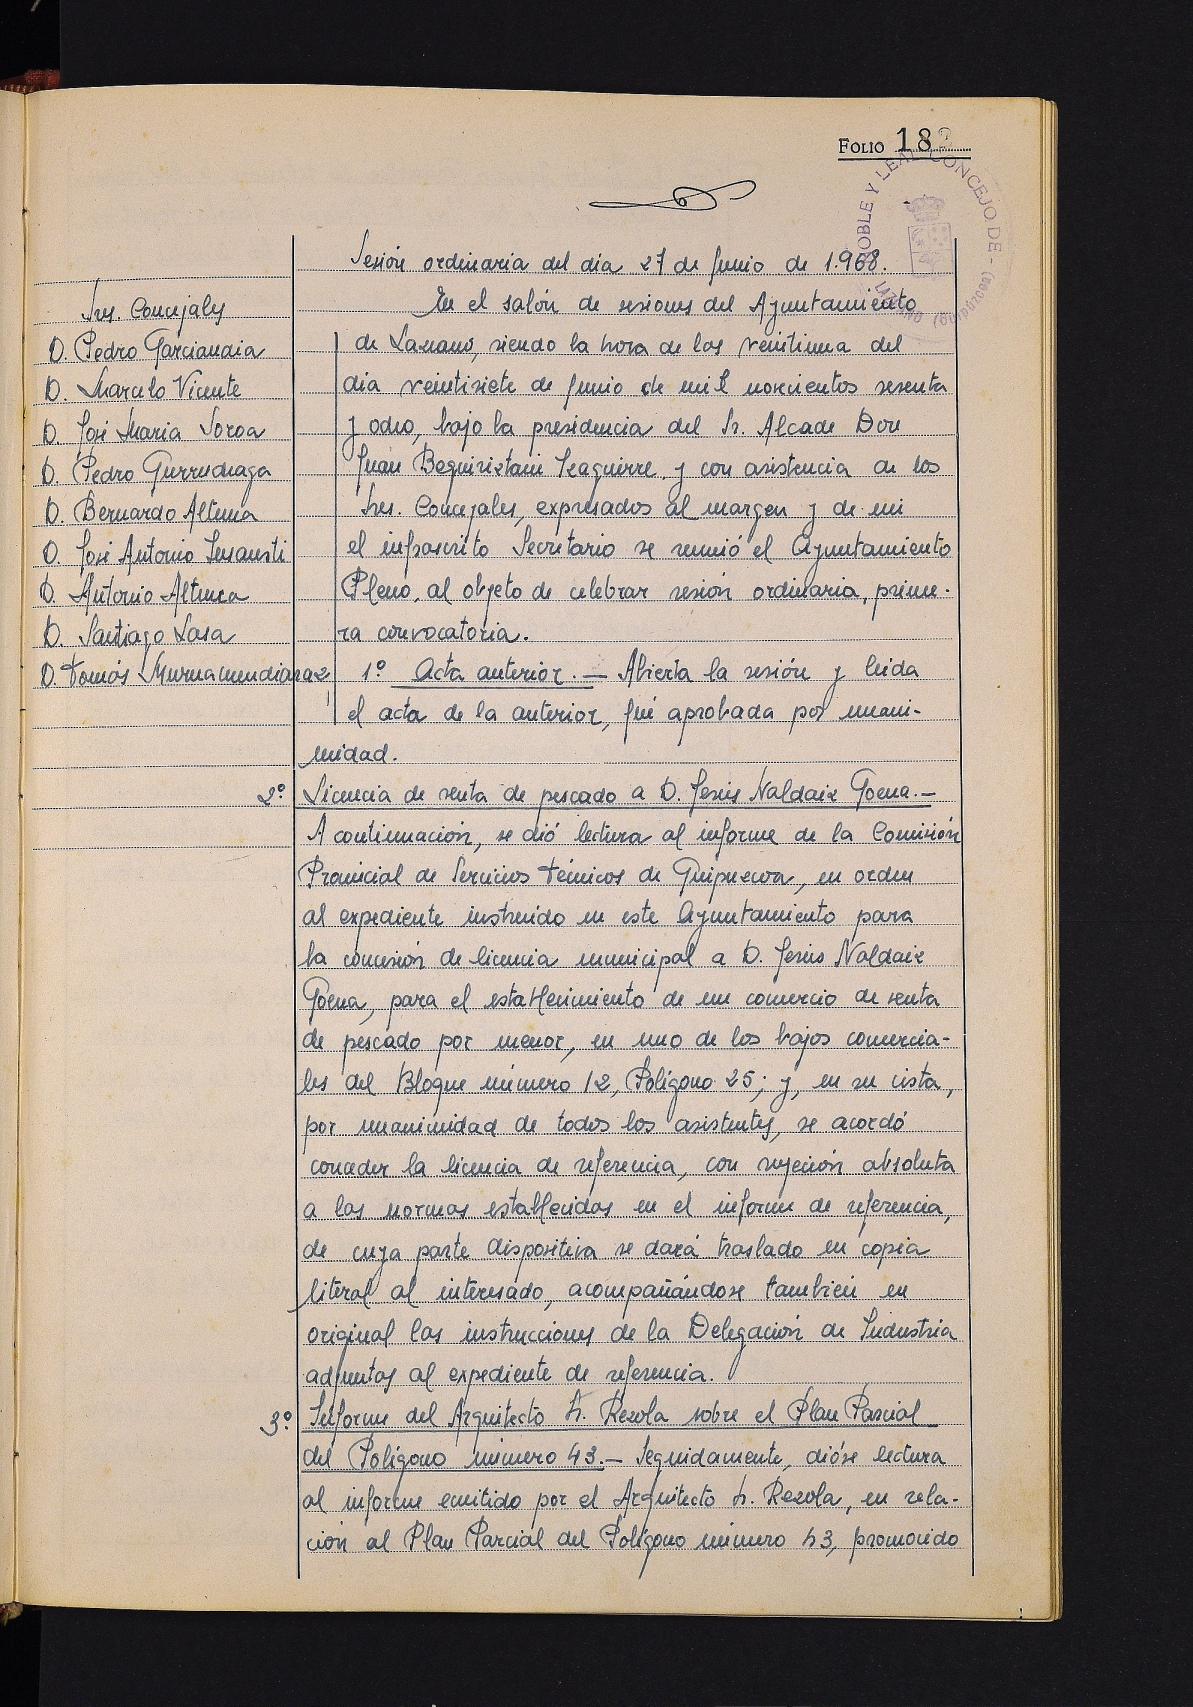 FOLIO 182
NOBLE Y LEAL CONCEJO DE - LAZCANO (GUIPÚZCOA)
Sesión ordinaria del día 27 de Junio de 1.968.
Sres. Concejales
D. Pedro Garciandia
D. Marcelo Vicente
D. José Maria Soroa
D. Pedro Gurruchaga
D. Bernardo Altuna
D. José Antonio Insausti
D. Antonio Altuna
D. Santiago Lasa
D. Tomás Muruamendiaraz
En el salón de sesiones del Ayuntamiento
de Lazcano, siendo la hora de las veintiuna del
día veintisiete de Junio de mil novecientos sesenta
y ocho, bajo la presidencia del Sr. Alcade Don
Juan Beguiristain Izaguirre, y con asistencia de los
Sres. Concejales, expresados al margen y de mi
el infrascrito Secretario se reunió el Ayuntamiento
Pleno, al objeto de celebrar sesión ordinaria, prime-
ra convocatoria.
1º Acta anterior.- Abierta la sesión y leida
el acta de la anterior, fué aprobada por unani-
midad.
2º Licencia de venta de pescado a D. Jesús Naldaiz Goena.-
A continuación, se dió lectura al informe de la Comisión
Provincial de Servicios Técnicos de Guipuzcoa, en orden
al expediente instruido en este Ayuntamiento para
la concesión de licencia municipal a D. Jesús Naldaiz
Goena, para el establecimiento de un comercio de venta
de pescado por menor, en uno de los bajos comercia-
les del Bloque número 12, Polígono 25; y, en su vista,
por unanimidad de todos los asistentes, se acordó
conceder la licencia de referencia, con sujeción absoluta
a las normas establecidas en el informe de referencia,
de cuya parte dispositiva se dará traslado en copia
literal al interesado, acompañándose también en
original las instrucciones de la Delegación de Industria
adjuntas al expediente de referencia.
3º Informe del Arquitecto Sr. Rezola sobre el Plan Parcial
del Polígono número 43.- Seguidamente, dióse lectura
al informe emitido por el Arquitecto Sr. Rezola, en rela-
ción al Plan Parcial del Polígono número 43, promovido